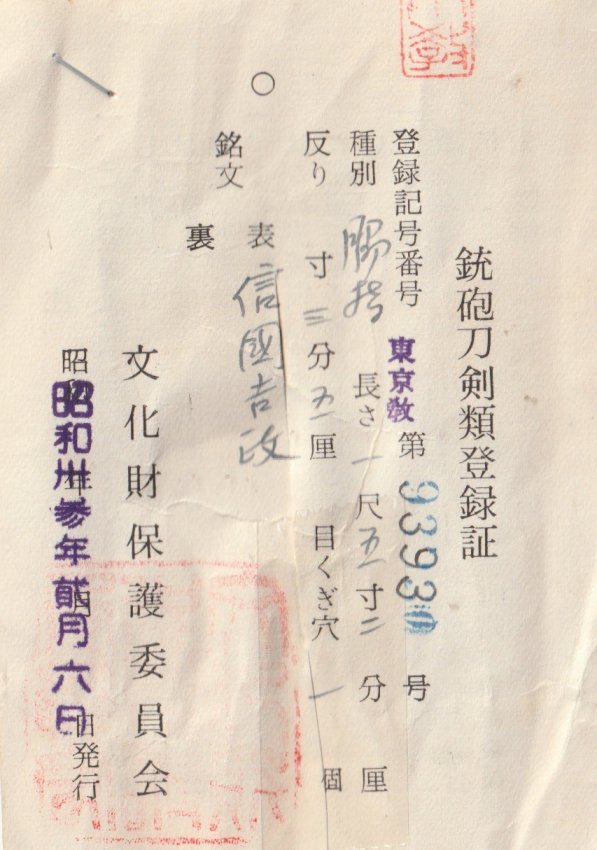 銃砲刀剣類登録証
登録記号番号 東京教 第 9393 号
種別 脇指 長さ 一尺五寸二分 厘
反り 寸三分五厘 目くぎ穴 一個
銘文 表 信國吉政
裏
文化財保護委員会
昭和卅参年貮月六日
昭 年 月 日発行